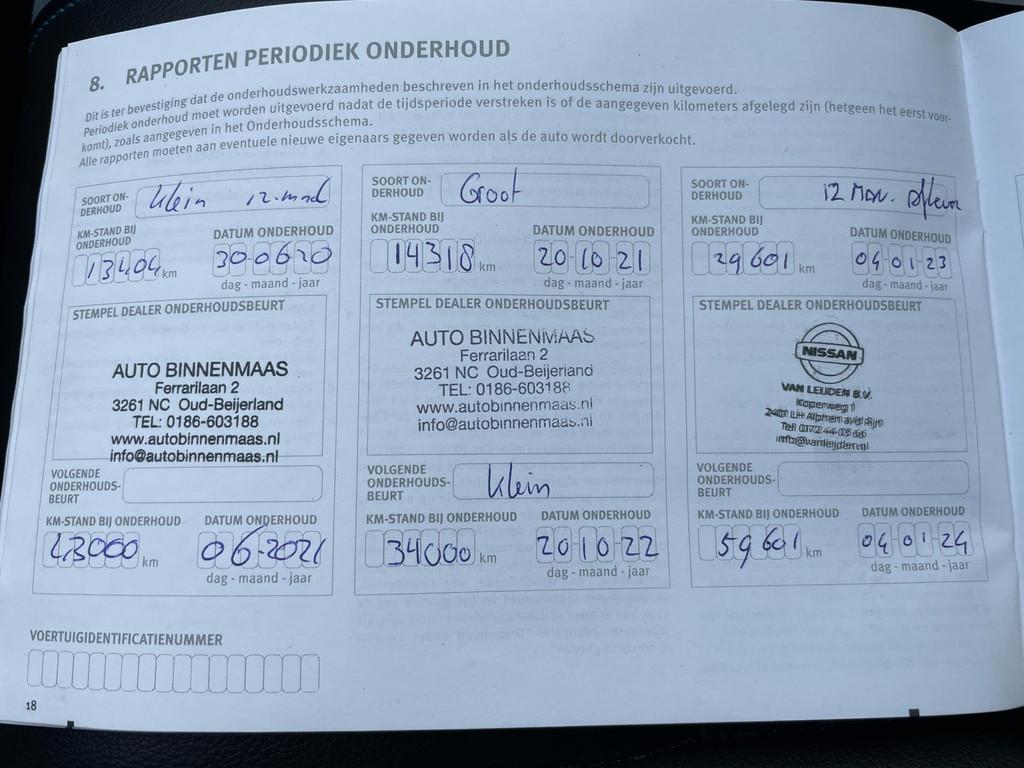 8. RAPPORTEN PERIODIEK ONDERHOUD
Dit is ter bevestiging dat de onderhoudswerkzaamheden beschreven in het onderhoudsschema zijn uitgevoerd.
Periodiek onderhoud moet worden uitgevoerd nadat de tijdsperiode verstreken is of de aangegeven kilometers afgelegd zijn (hetgeen het eerst voor-
komt), zoals aangegeven in het Onderhoudsschema.
Alle rapporten moeten aan eventuele nieuwe eigenaars gegeven worden als de auto wordt doorverkocht.
SOORT ON-
DERHOUD
Klein 12.mnd
KM-STAND BIJ
ONDERHOUD
DATUM ONDERHOUD
13404 km
30-06-20
dag - maand - jaar
STEMPEL DEALER ONDERHOUDSBEURT
AUTO BINNENMAAS
Ferrarilaan 2
3261 NC Oud-Beijerland
TEL: 0186-603188
www.autobinnenmaas.nl
info@autobinnenmaas.nl
VOLGENDE
ONDERHOUDS-
BEURT
KM-STAND BIJ ONDERHOUD
DATUM ONDERHOUD
43000 km
06-2021
dag - maand - jaar
SOORT ON-
DERHOUD
Groot
KM-STAND BIJ
ONDERHOUD
DATUM ONDERHOUD
14318 km
20-10-21
dag - maand - jaar
STEMPEL DEALER ONDERHOUDSBEURT
AUTO BINNENMAAS
Ferrarilaan 2
3261 NC Oud-Beijerland
TEL: 0186-603188
www.autobinnenmaas.nl
info@autobinnenmaas.nl
VOLGENDE
ONDERHOUDS-
BEURT
Klein
KM-STAND BIJ ONDERHOUD
DATUM ONDERHOUD
34000 km
20-10-22
dag - maand - jaar
SOORT ON-
DERHOUD
12 Mnd.
KM-STAND BIJ
ONDERHOUD
DATUM ONDERHOUD
29601 km
04-01-23
dag - maand - jaar
STEMPEL DEALER ONDERHOUDSBEURT
NISSAN
VAN LEIJDEN B.V.
Koperweg 1
2401 LH Alphen a/d Rijn
info@vanleijden.nl
VOLGENDE
ONDERHOUDS-
BEURT
KM-STAND BIJ ONDERHOUD
DATUM ONDERHOUD
59601 km
04-01-24
dag - maand - jaar
VOERTUIGIDENTIFICATIENUMMER
18